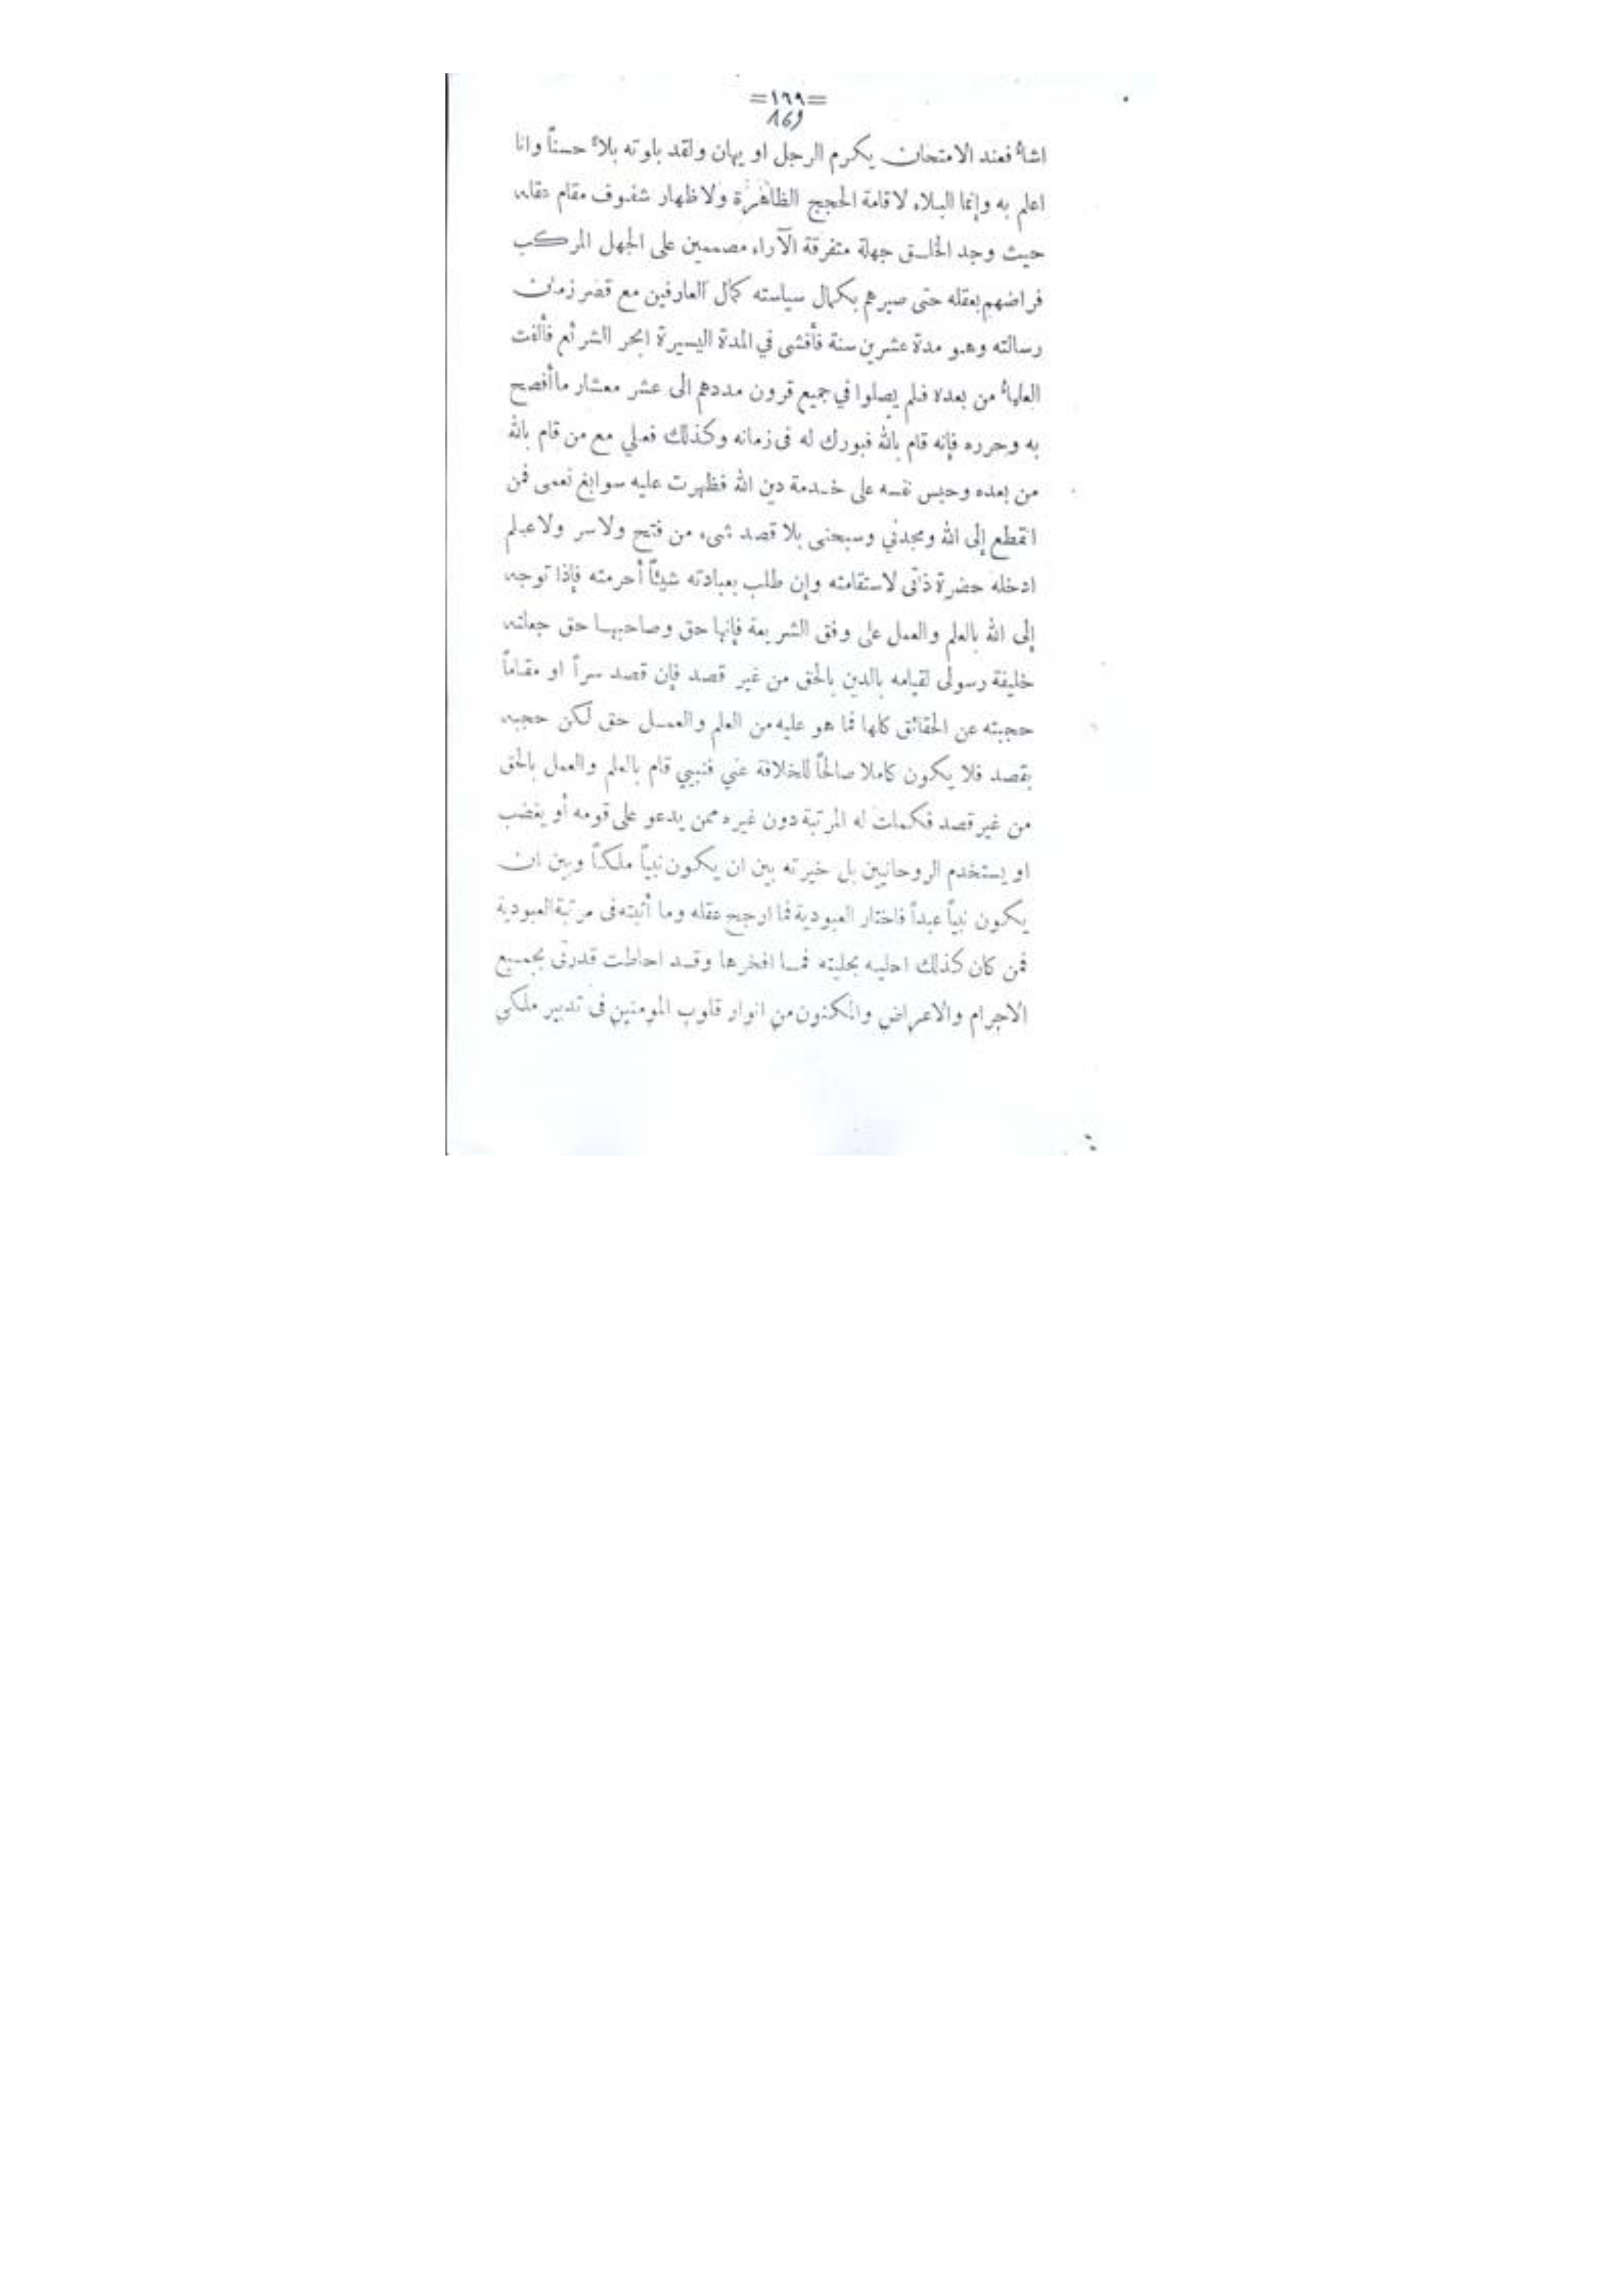 =١٦٩=
169
اشاءُ فعند الامتحان يكرم الرجل او يهان ولقد بلوته بلاءً حسناً وانا
اعلم به وإنما البلاء لاقامة الحجج الظاهرة ولاظهار شفوف مقام عقله
حيث وجد الخلق جهلة متفرقة الآراء مصممين على الجهل المركب
فراضهم بعقله حتى صيرهم بكمال سياسته كمال العارفين مع قصر زمان
رسالته وهو مدة عشرين سنة فأفشى في المدة اليسيرة ابحر الشرائع فألفت
العلماءُ من بعده فلم يصلوا في جميع قرون مددهم الى عشر معشار ما أفصح
به وحرره فإنه قام بالله فبورك له فى زمانه وكذلك فعلي مع من قام بالله
من بعده وحبس نفسه على خدمة دين الله فظهرت عليه سوابغ نعمى فمن
انقطع إلى الله ومجدني وسبحنى بلا قصد شىء من فتح ولا سر ولا علم
ادخله حضرة ذاتى لاستقامته وإن طلب بعبادته شيئاً أحرمته فإذا توجه
إلى الله بالعلم والعمل على وفق الشريعة فإنها حق وصاحبها حق جعلته
خليفة رسولى لقيامه بالدين بالحق من غير قصد فإن قصد سراً او مقاماً
حجبته عن الحقائق كلها فما هو عليه من العلم والعمل حق لكن حجبه
بقصد فلا يكون كاملا صالحاً للخلافة عني فنبيي قام بالعلم والعمل بالحق
من غير قصد فكملت له المرتبة دون غيره ممن يدعو على قومه أو يغضب
او يستخدم الروحانيين بل خيرته بين ان يكون نبياً ملكاً وبين ان
يكون نبياً عبداً فاختار العبودية فما ارجح عقله وما أثبته فى مرتبة العبودية
فمن كان كذلك احليه بحليته فما افخرها وقد احاطت قدرتى بجميع
الاجرام والاعراض والمكنون من انوار قلوب المومنين فى تدبير ملكي